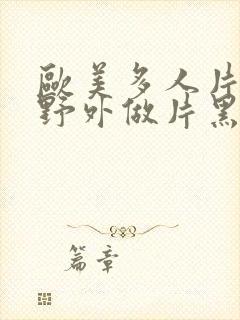 歐美多人片
野外做片黑
篇章